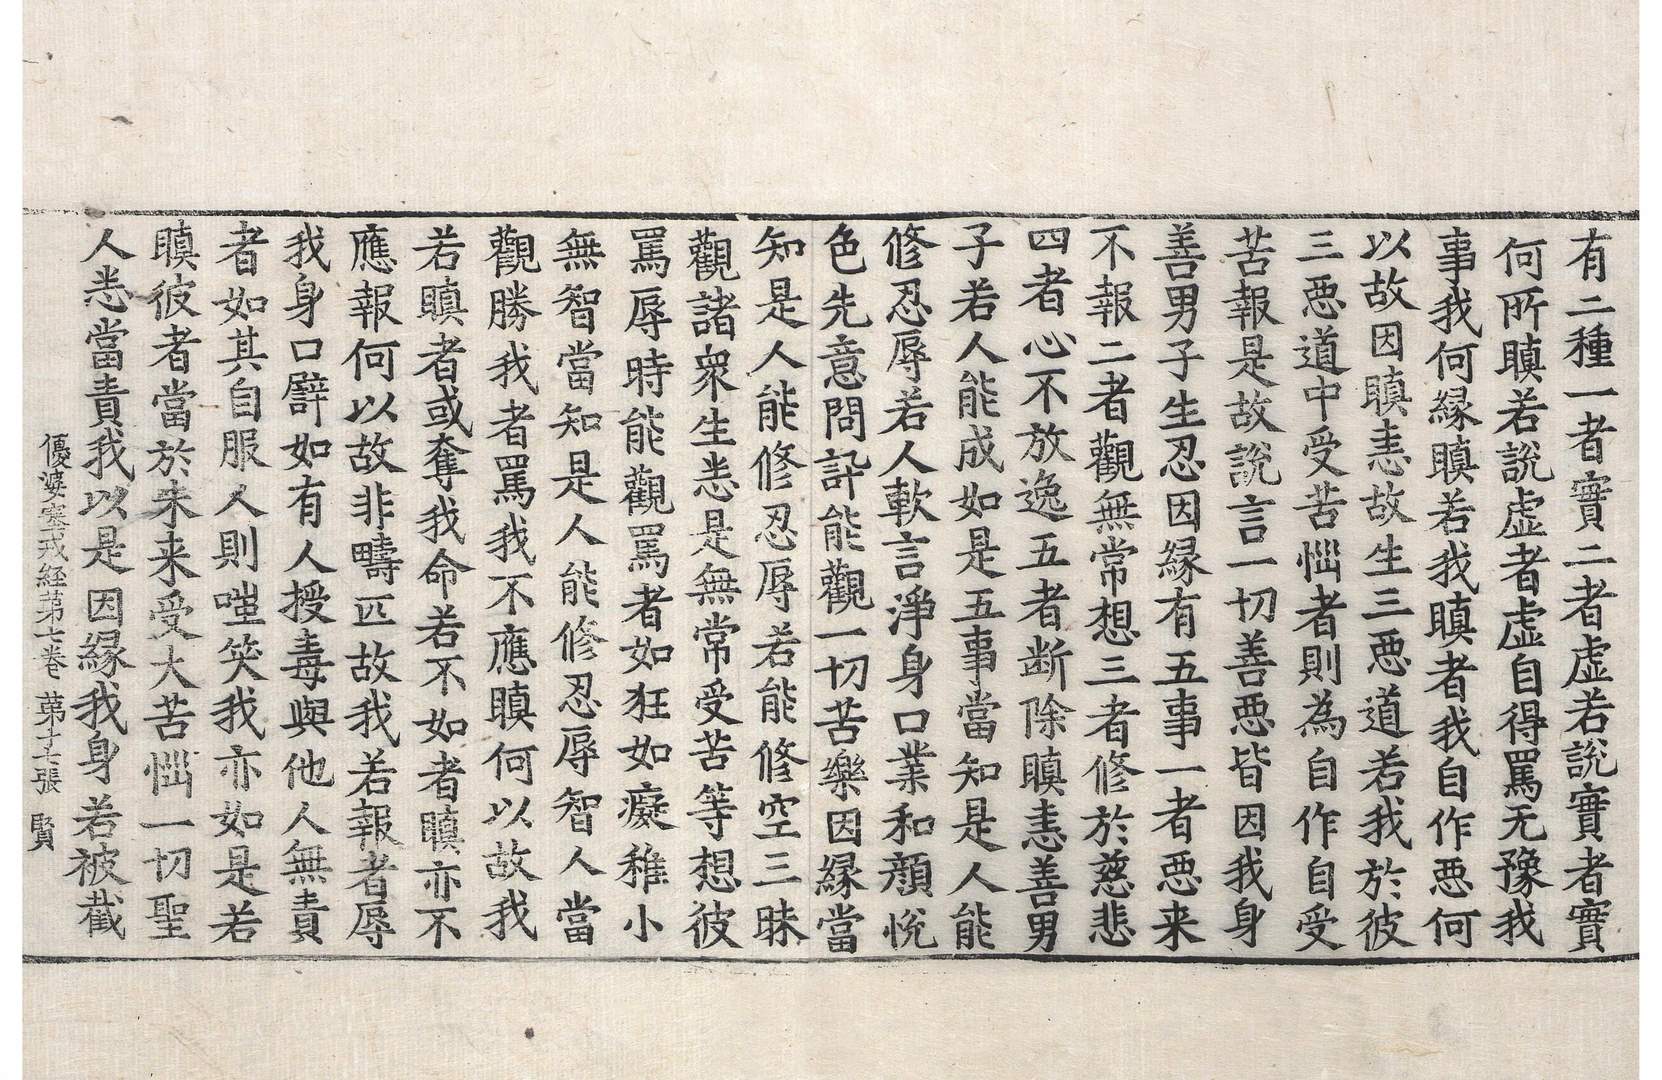 有二種一者實二者虛若說實者實
何所瞋若說虛者虛自得罵无豫我
事我何緣瞋若我瞋者我自作惡何
以故因瞋恚故生三惡道若我於彼
三惡道中受苦惱者則為自作自受
苦報是故說言一切善惡皆因我身
善男子生忍因緣有五事一者惡来
不報二者觀無常想三者修於慈悲
四者心不放逸五者断除瞋恚善男
子若人能成如是五事當知是人能
修忍辱若人軟言淨身口業和顔悅
色先意問訊能觀一切苦樂因緣當
知是人能修忍辱若能修空三昧
觀諸衆生悉是無常受苦等想彼
罵辱時能觀罵者如狂如癡稚小
無智當知是人能修忍辱智人當
觀勝我者罵我不應瞋何以故我
若瞋者或奪我命若不如者瞋亦不
應報何以故非疇匹故我若報者辱
我身口譬如有人授毒與他人無責
者如其自服人則嗤笑我亦如是若
瞋彼者當於未来受大苦惱一切聖
人悉當責我以是因緣我身若被截
優婆塞戒経第七卷 第十七張 賢